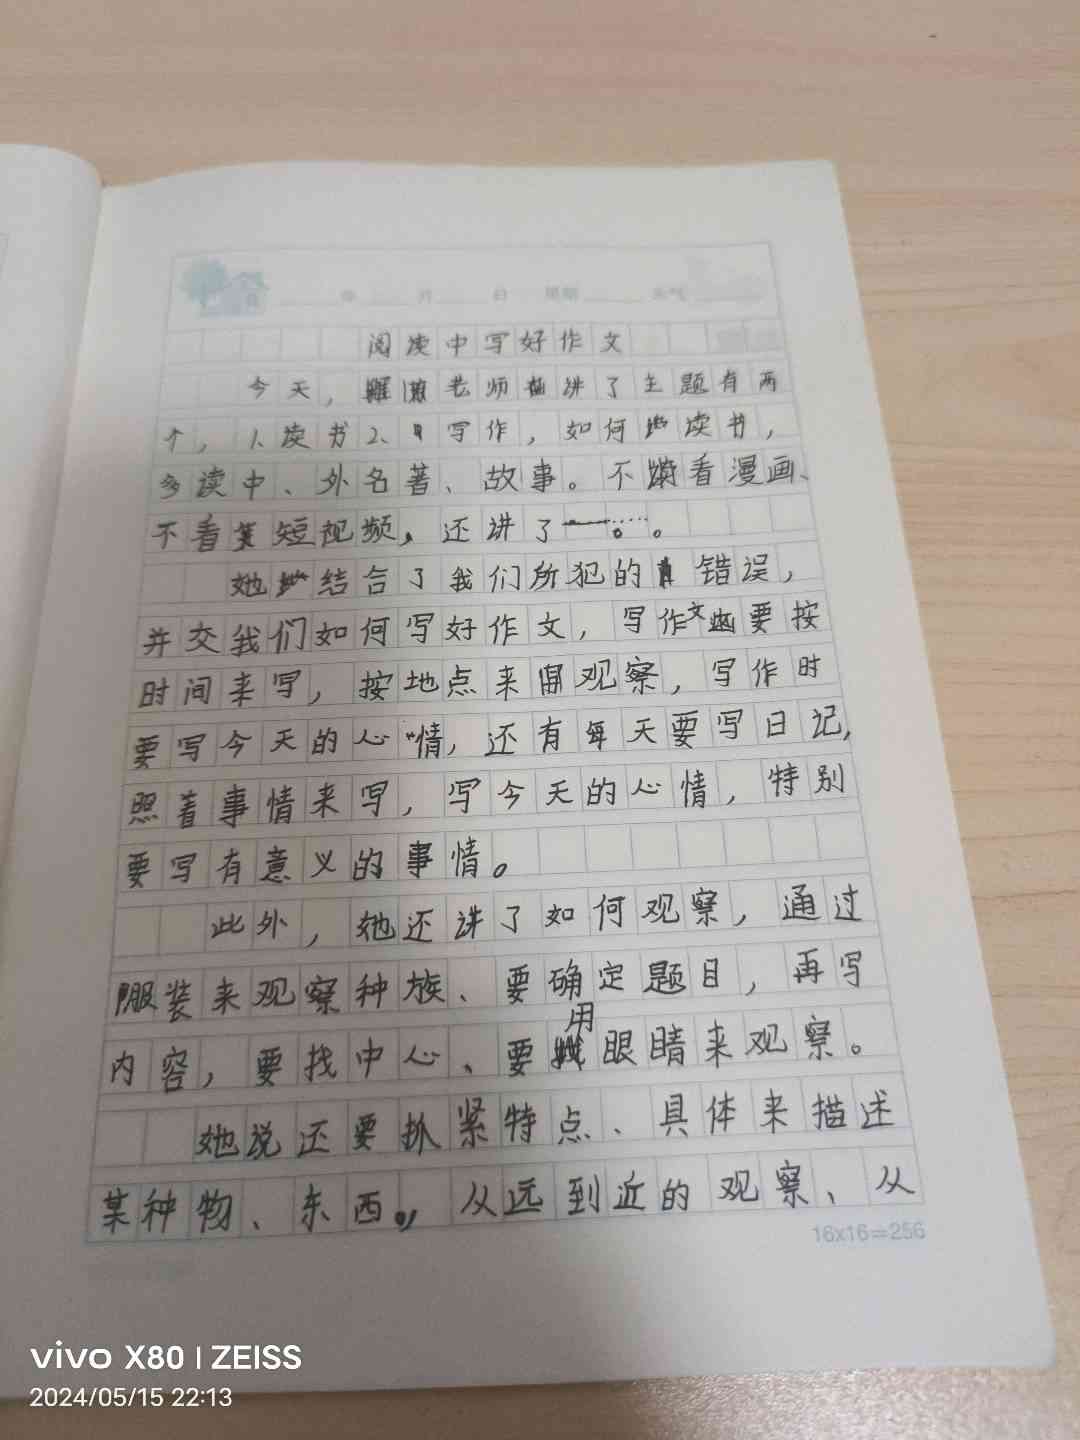 年 月 日 星期 天气
阅读中写好作文
今天，老师讲了主题有两
个，1、读书2、写作，如何读书，
多读中、外名著、故事。不看漫画、
不看短视频，还讲了……。
她结合了我们所犯的错误，
并交我们如何写好作文，写作文要按
时间来写，按地点来观察，写作时
要写今天的心情，还有每天要写日记，
照着事情来写，写今天的心情，特别
要写有意义的事情。
此外，她还讲了如何观察，通过
服装来观察种族、要确定题目，再写
内容，要找中心、要用眼睛来观察。
她说还要抓紧特点、具体来描述
某种物、东西。，从远到近的观察、从
16x16=256
vivo X80 | ZEISS
2024/05/15 22:13